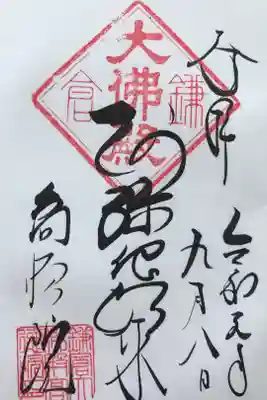 奉拝
令和元年
九月八日
大佛殿
鎌倉
阿弥陀如来
高徳院